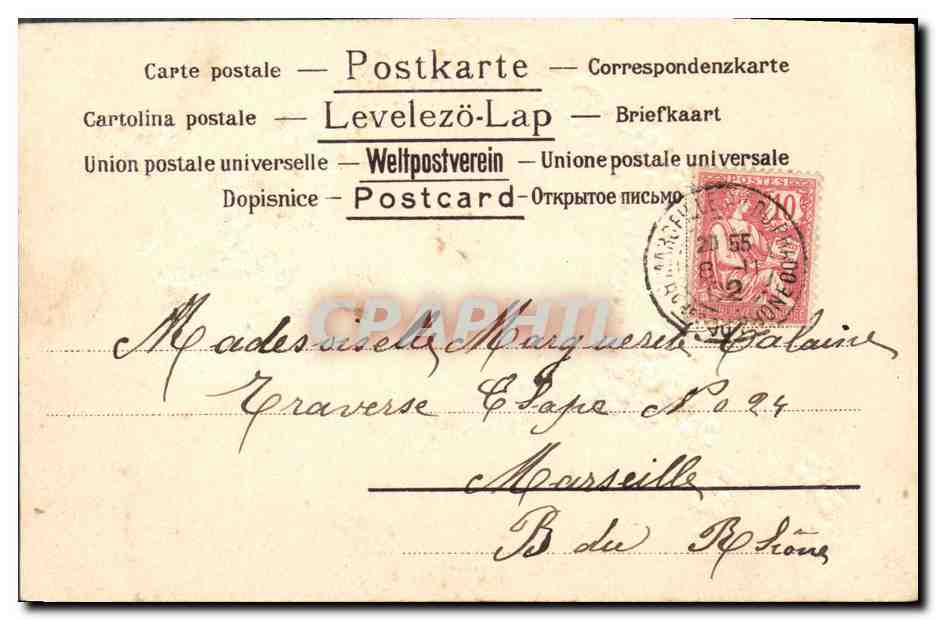 Carte postale — Postkarte — Correspondenzkarte
Cartolina postale — Levelezö-Lap — Briefkaart
Union postale universelle — Weltpostverein — Unione postale universale
Dopisnice — Postcard - Открытое письмо
POSTES
10
20 55
8
2
CPARHTL
Mademoiselle Marguerite
Traverse No 24
Marseille
B du Rhône